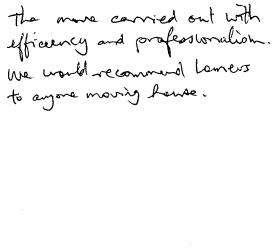 The move carried out with
efficiency and professionalism.
We would recommend Lamers
to anyone moving house.